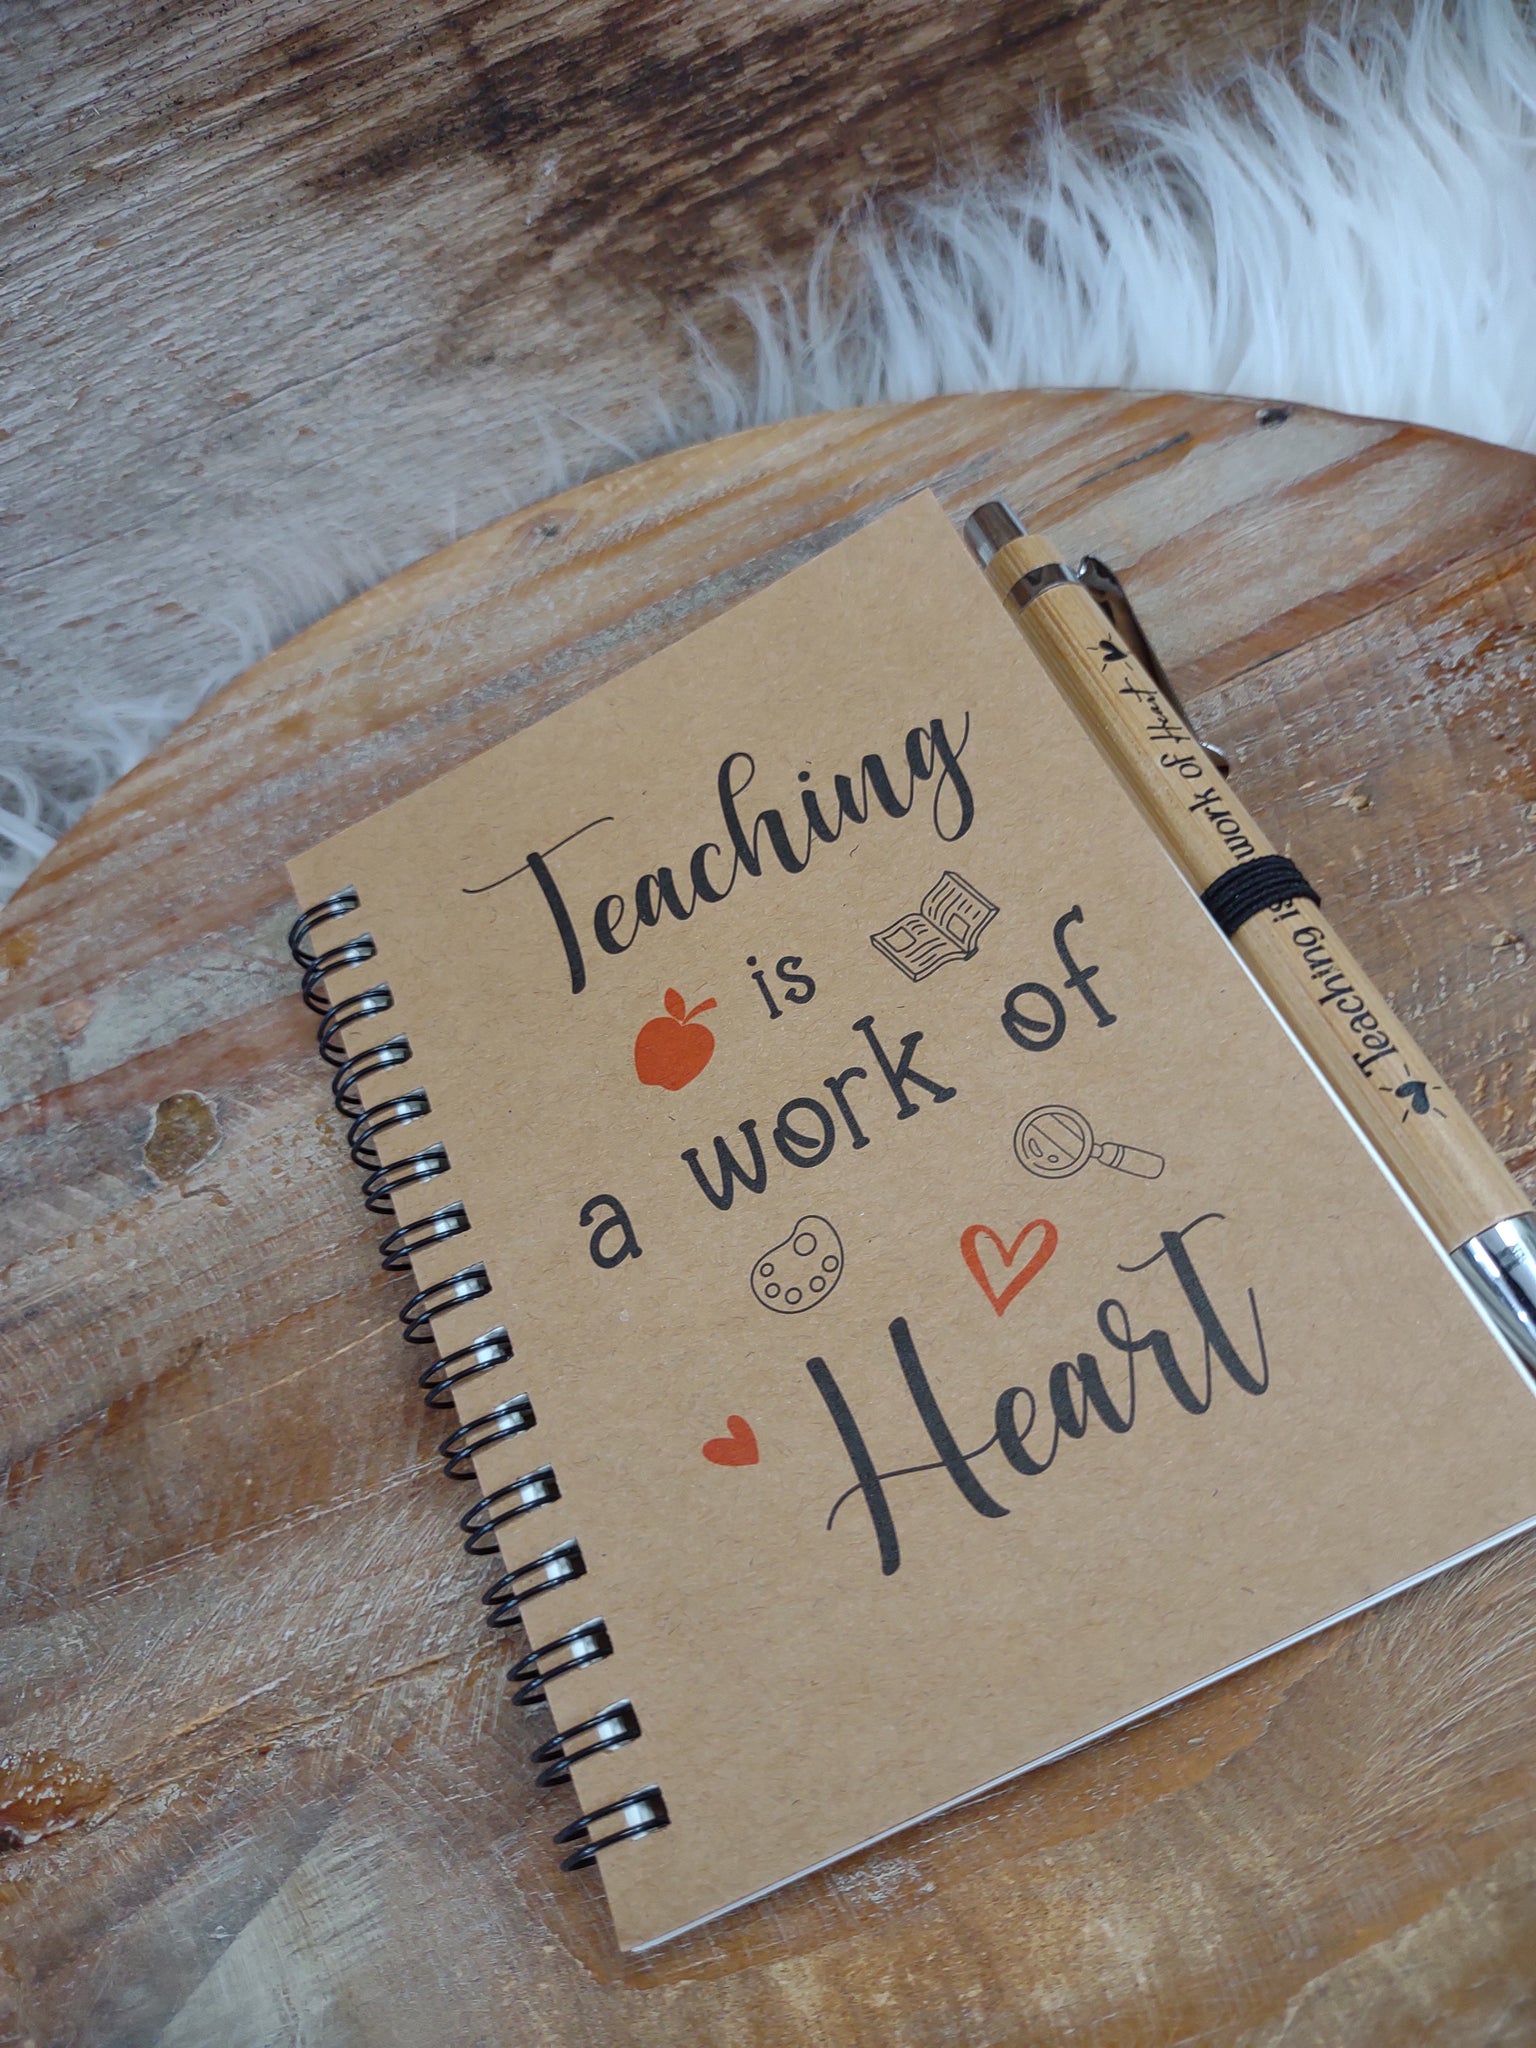 Teaching
is
a work of
Heart
Teaching is
work of Heart